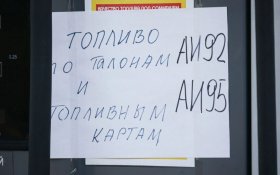 ТОПЛИВО
ПО ТАЛОНАМ
И
ТОПЛИВНЫМ
КАРТАМ
АИ92
АИ95